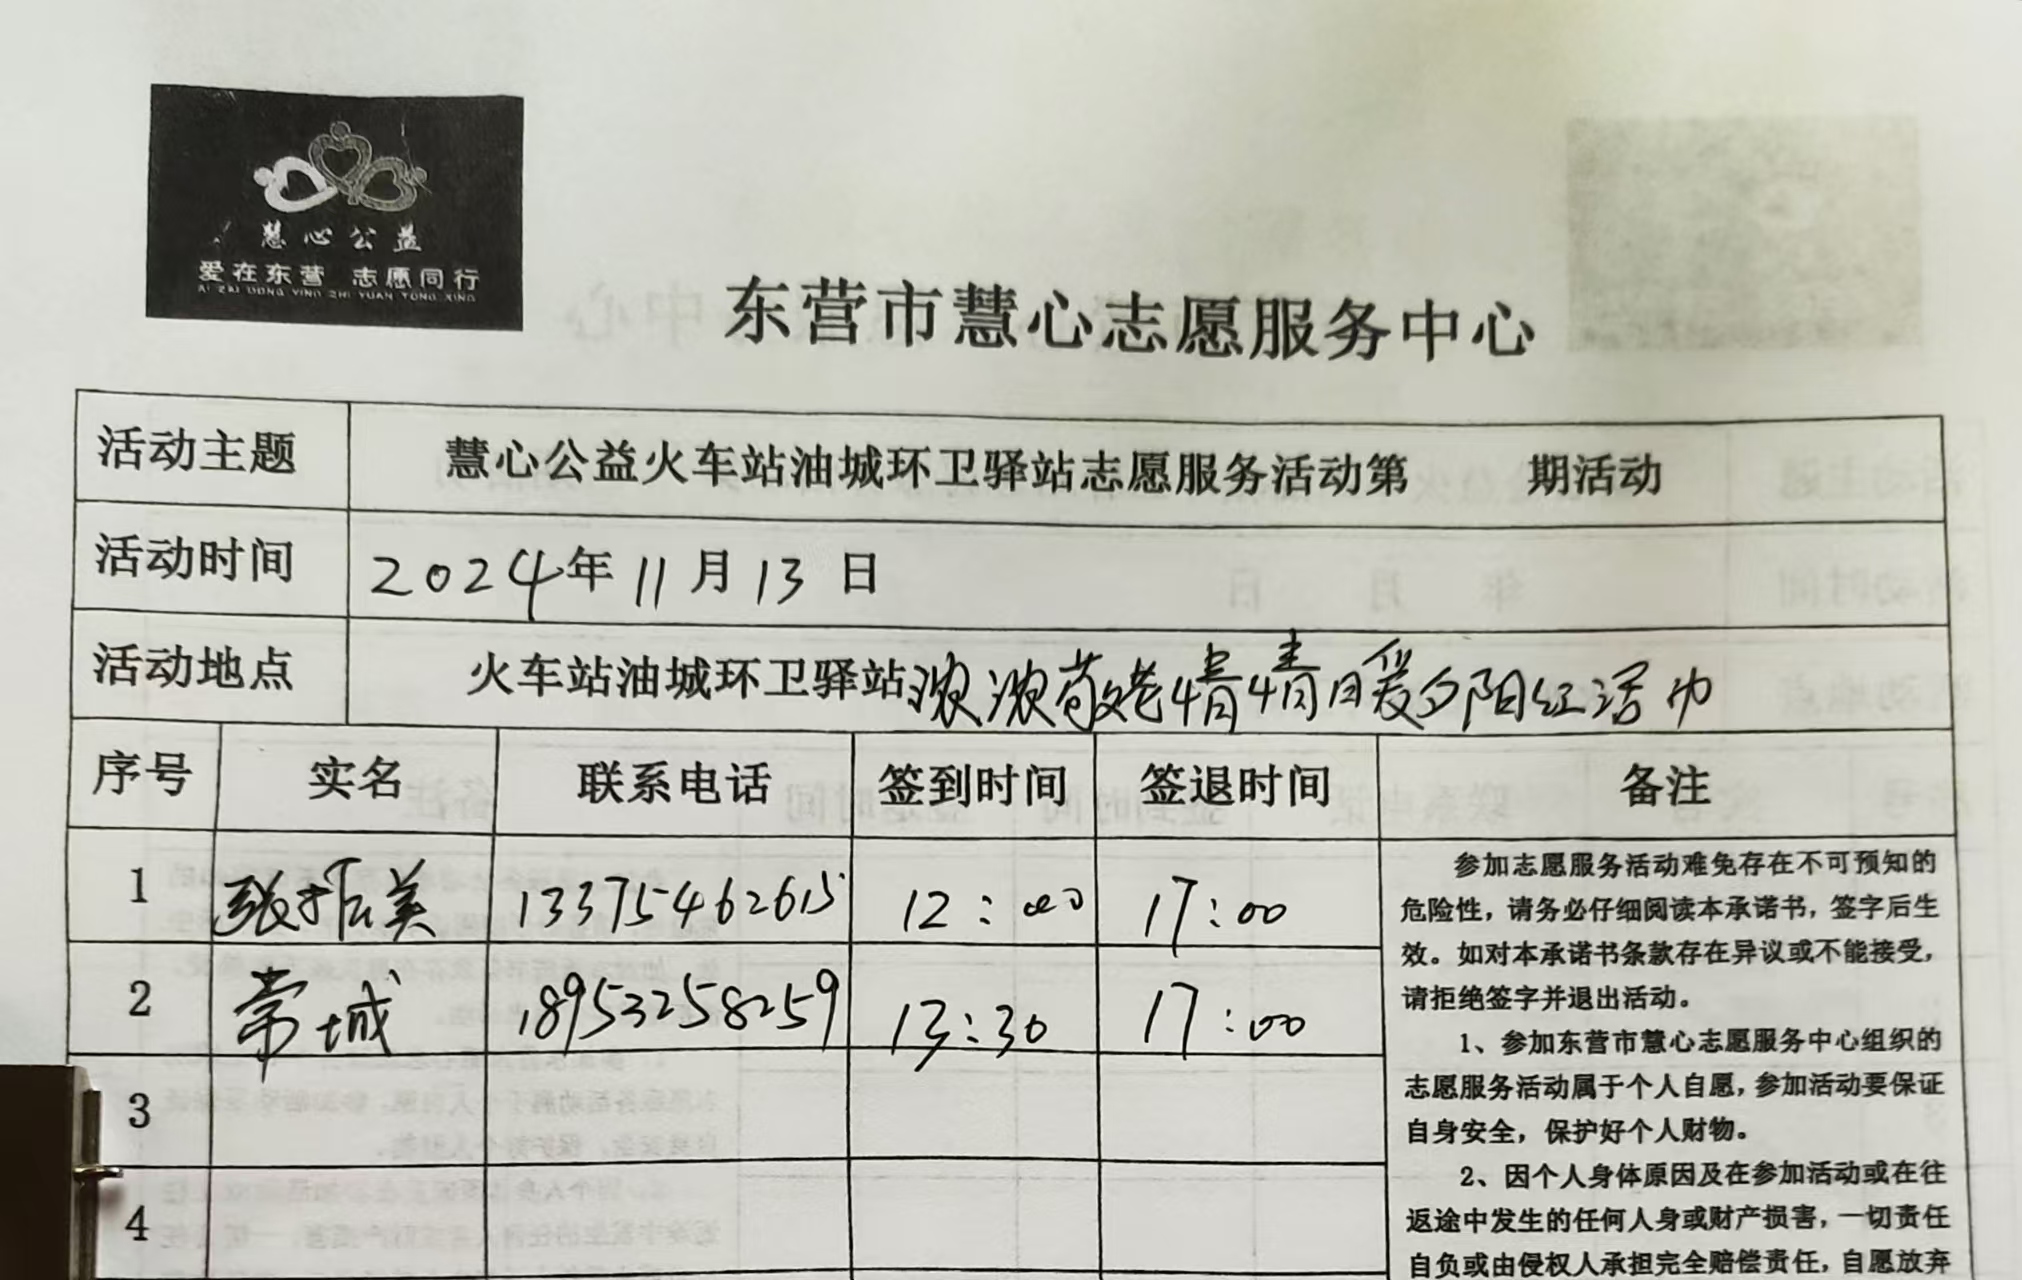 慧心公益
爱在东营 志愿同行
AI ZAI DONG YING ZHI YUAN TONG XING
东营市慧心志愿服务中心
活动主题 慧心公益火车站油城环卫驿站志愿服务活动第 期活动
活动时间 2024年11月13日
活动地点 火车站油城环卫驿站浓浓敬老情情暖夕阳红活动
序号 实名 联系电话 签到时间 签退时间 备注
1 张振美 13375462615 12:00 17:00
2 常城 18953258259 13:30 17:00
3
4
参加志愿服务活动难免存在不可预知的
危险性，请务必仔细阅读本承诺书，签字后生
效。如对本承诺书条款存在异议或不能接受，
请拒绝签字并退出活动。
1、参加东营市慧心志愿服务中心组织的
志愿服务活动属于个人自愿，参加活动要保证
自身安全，保护好个人财物。
2、因个人身体原因及在参加活动或在往
返途中发生的任何人身或财产损害，一切责任
自负或由侵权人承担完全赔偿责任，自愿放弃